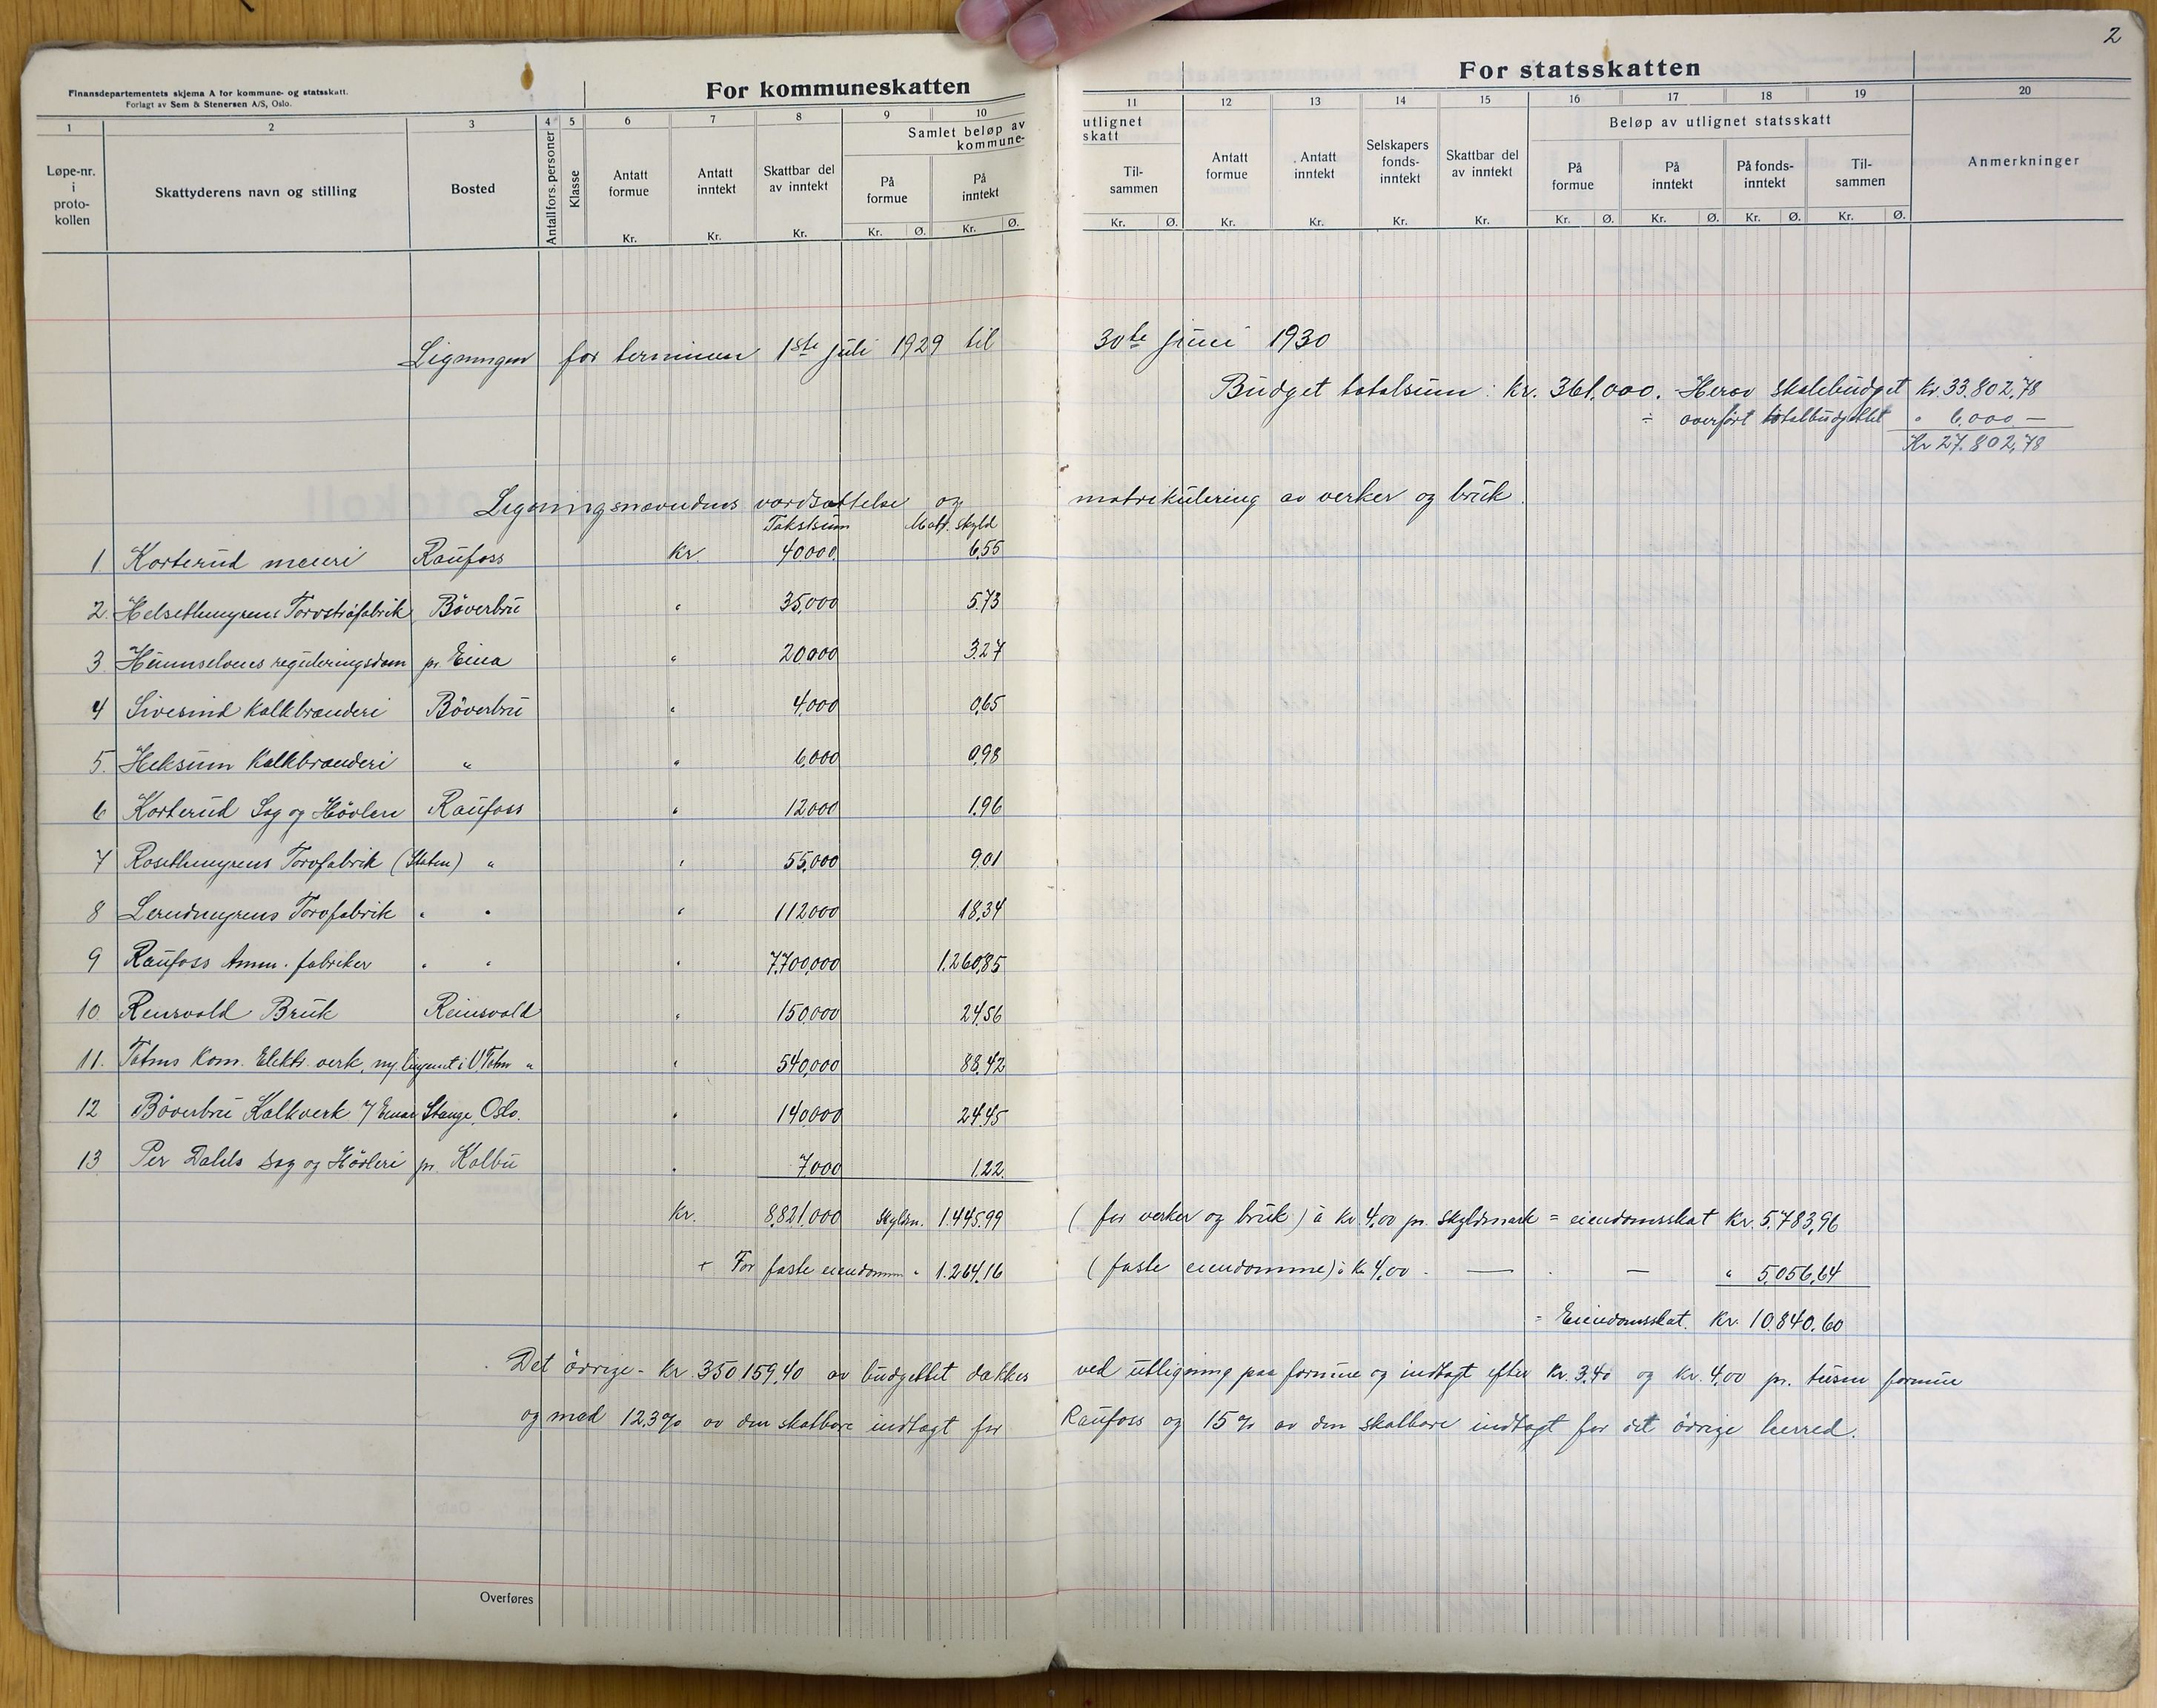 2
Finansdepartementets skjema A for kommune- og statsskatt.
Forlagt av Sem & Stenersen A/S, Oslo.
For kommuneskatten
For statsskatten
1 2 3 4 5 6 7 8 9 10 11 12 13 14 15 16 17 18 19 20
Løpe-nr. i proto-kollen
Skattyderens navn og stilling
Bosted
Antall fors. personer
Klasse
Antatt formue Kr.
Antatt inntekt Kr.
Skattbar del av inntekt Kr.
Samlet beløp av kommune-
På formue Kr. Ø.
På inntekt Kr. Ø.
utlignet skatt
Til-sammen Kr. Ø.
Antatt formue Kr.
Antatt inntekt Kr.
Selskapers fonds-inntekt Kr.
Skattbar del av inntekt Kr.
Beløp av utlignet statsskatt
På formue Kr. Ø.
På inntekt Kr. Ø.
På fonds-inntekt Kr. Ø.
Til-sammen Kr. Ø.
Anmerkninger
Ligningen for terminen 1ste juli 1929 til 30te juni 1930
Budget totalsum: Kr. 361,000. Herav skolebudget Kr. 33.802,78
÷ overført totalbudgettet " 6,000 —
Kr 27.802,78
Ligningsnævndens værdsættelse og matrikulering av verker og bruk.
Takstsum Matr. skyld
1 Korterud meieri Raufoss Kr. 40000 6,55
2. Helsethmyrens Torvstrøfabrik Bøverbru " 35,000 5.73
3 Hunnselvens reguleringsdam pr. Eina " 20000 3.27
4 Sivesind Kalkbrænderi Bøverbru " 4,000 0,65
5. Heksum Kalkbrænderi " " 6,000 0,98
6 Korterud Sag og Høvleri Raufoss " 12000 1.96
7 Rosethmyrens Torvfabrik (Staten) " " 55,000 9.01
8 Lerudmyrens Torvfabrik " " " 112000 18,34
9 Raufoss Amm. fabriker " " " 7.700,000 1.260,85
10 Reinsvold Bruk Reinsvold " 150,000 24,56
11. Totens Kom. Elektr. verk, ny lignet i V. Toten " " 540,000 88,42
12 Bøverbru Kalkverk Einar Stange, Oslo. " 140000 24.45
13 Per Dahls Sag og Høvleri pr. Kolbu " 7,000 1.22
Kr. 8,821,000 Skyldm. 1.445.99 (for verker og bruk) à Kr 4,00 pr. skyldmark = eiendomsskat Kr. 5.783,96
+ For faste eiendomm " 1.264,16 (faste eiendomme) à Kr 4,00 " — " — " 5,056,64
= Eiendomsskat. Kr. 10.840,60
Det øvrige - Kr. 350159,40 av budgettet dækkes ved utligning paa formue og indtægt efter Kr. 3.40 og Kr. 4,00 pr. tusen formue
og med 12.3% av den skatbare indtægt for Raufoss og 15% av den skatbare indtægt for det øvrige herred.
Overføres